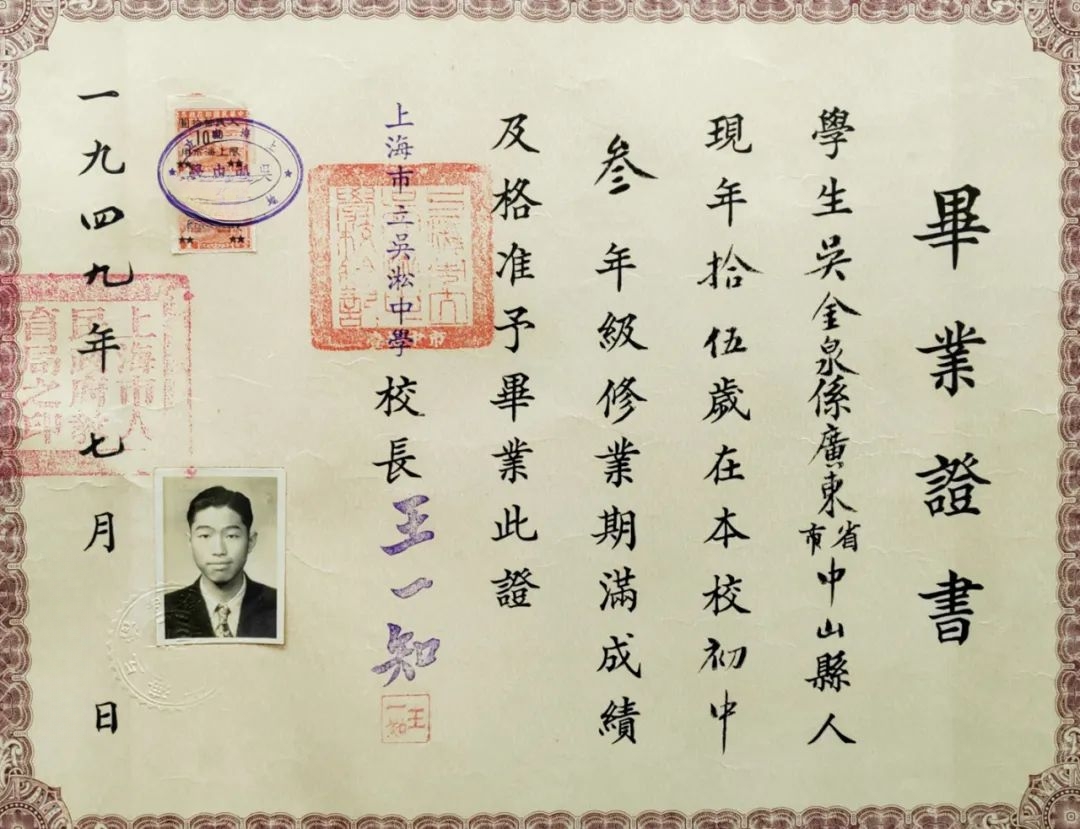 畢業證書
學生吳金泉係廣東省市中山縣人
現年拾伍歲在本校初中
叁年級修業期滿成績
及格准予畢業此證
上海市立吳淞中學校長王一知
王一知
一九四九年七月日
上海市人
民政府教
育局之印